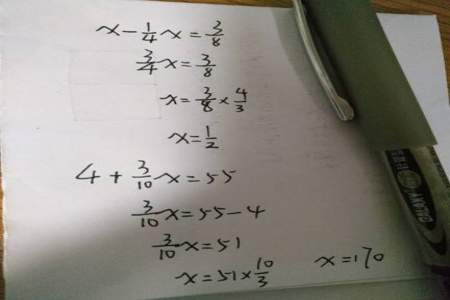 x - 1/4 x = 3/8
3/4 x = 3/8
x = 3/8 × 4/3
x = 1/2
4 + 3/10 x = 55
3/10 x = 55 - 4
3/10 x = 51
x = 51 × 10/3
x = 170